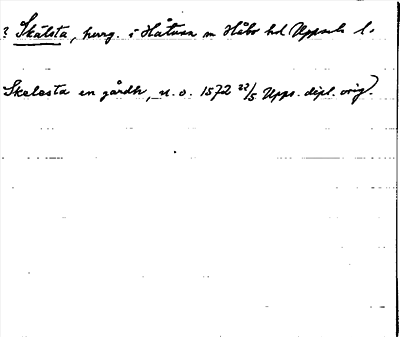 ? Skälsta, herrg. i Håtuna sn Håbo hd Uppsala l.
Skalesta en gårdh, u. o. 1572 22/5 Upps. dipl. orig.